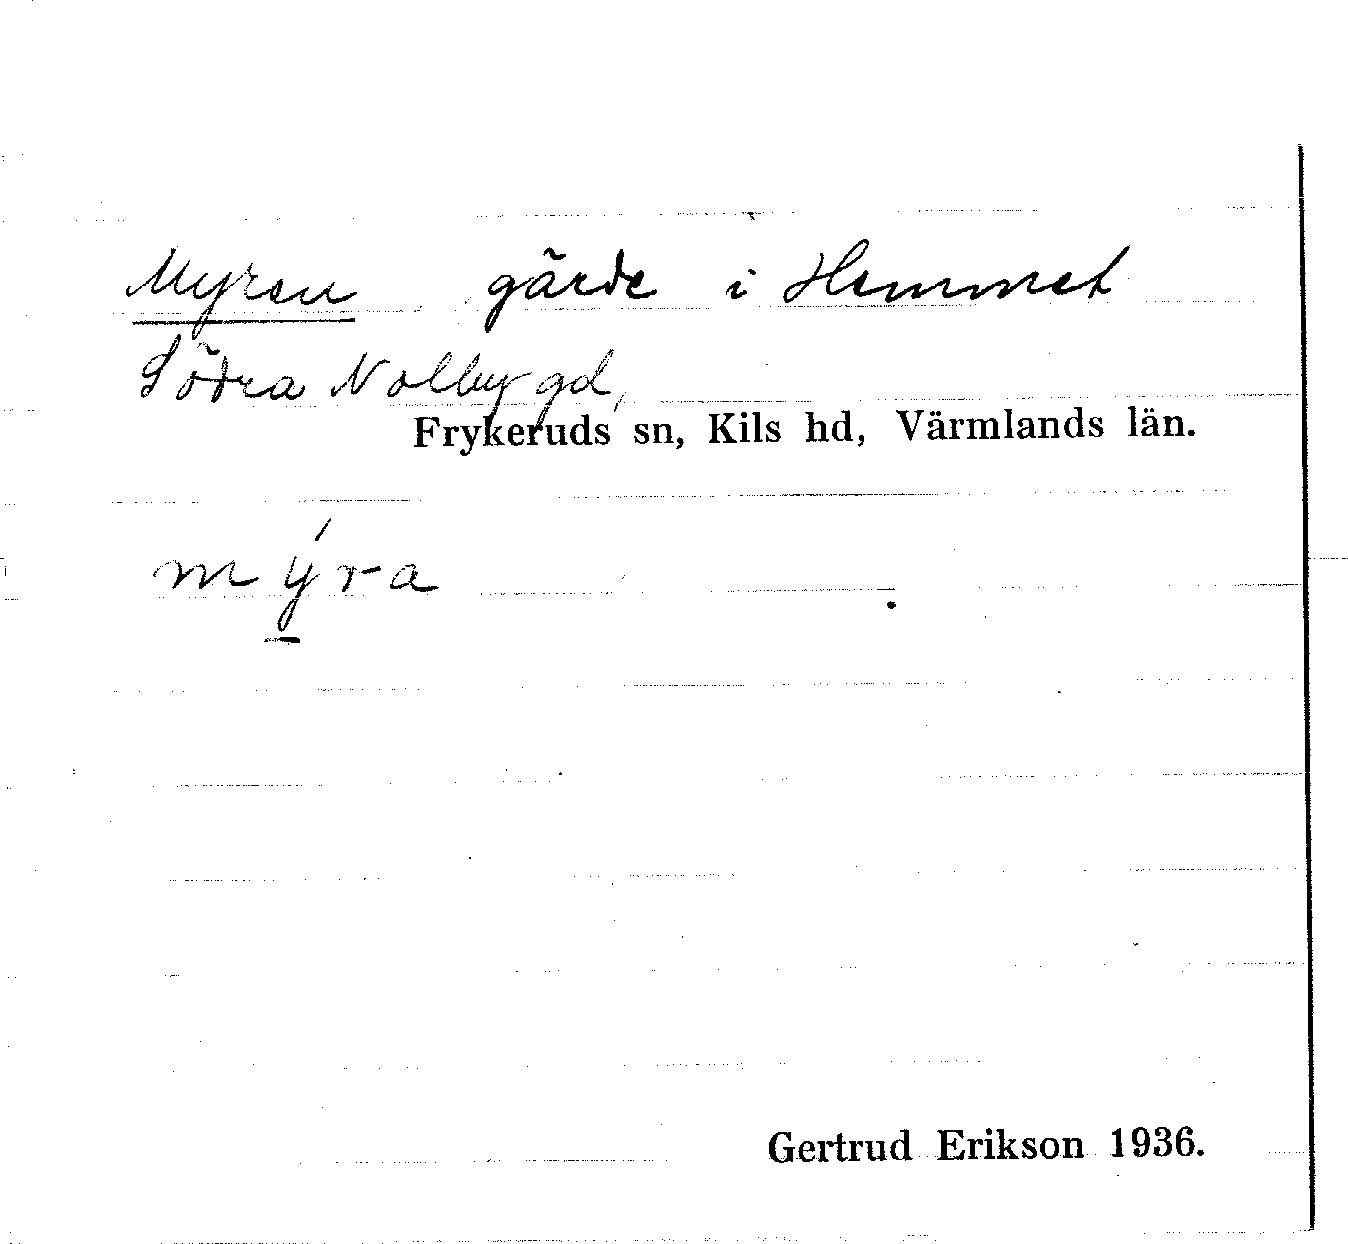 Myren gärde i Hemmet
Södra Nolbygd,
Frykeruds sn, Kils hd, Värmlands län.
mýra
Gertrud Erikson 1936.